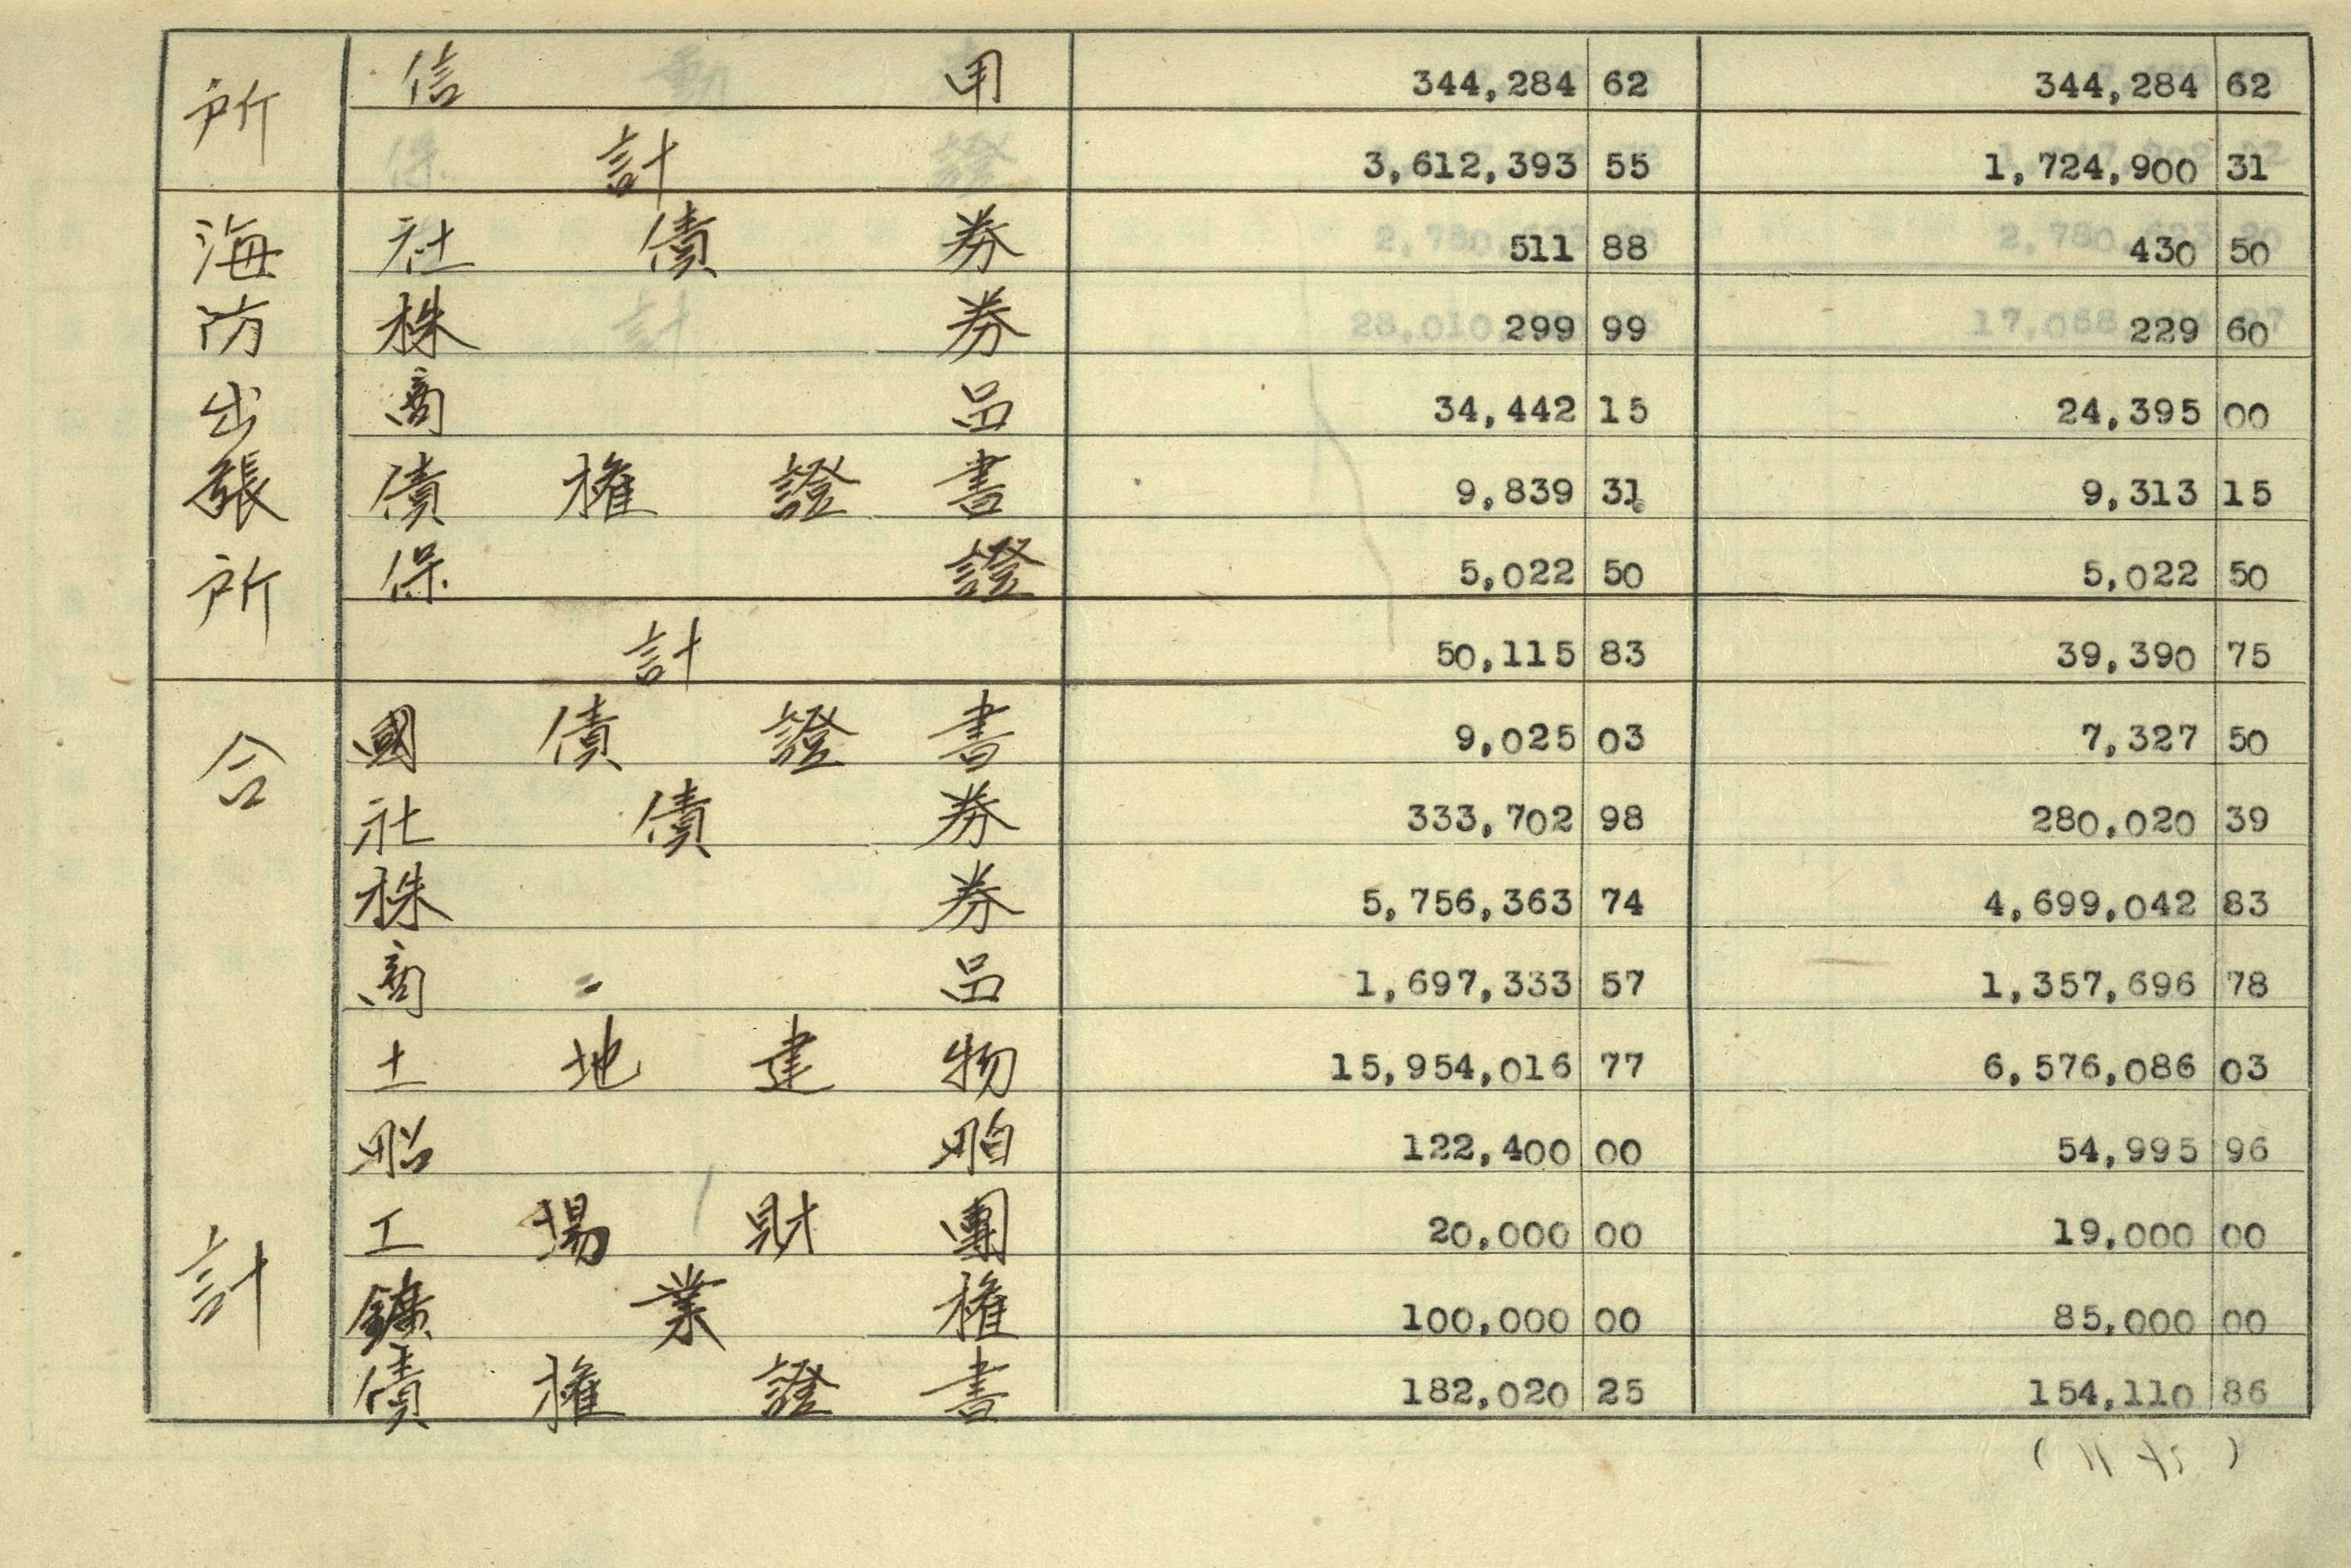 所 信用 344,284 62 344,284 62
計 3,612,393 55 1,724,900 31
海防出張所 社債券 511 88 430 50
株券 299 99 229 60
商品 34,442 15 24,395 00
債権證書 9,839 31 9,313 15
保證 5,022 50 5,022 50
計 50,115 83 39,390 75
合計 國債證書 9,025 03 7,327 50
社債券 333,702 98 280,020 39
株券 5,756,363 74 4,699,042 83
商品 1,697,333 57 1,357,696 78
土地建物 15,954,016 77 6,576,086 03
船舶 122,400 00 54,995 96
工場財團 20,000 00 19,000 00
鑛業権 100,000 00 85,000 00
債権證書 182,020 25 154,110 86